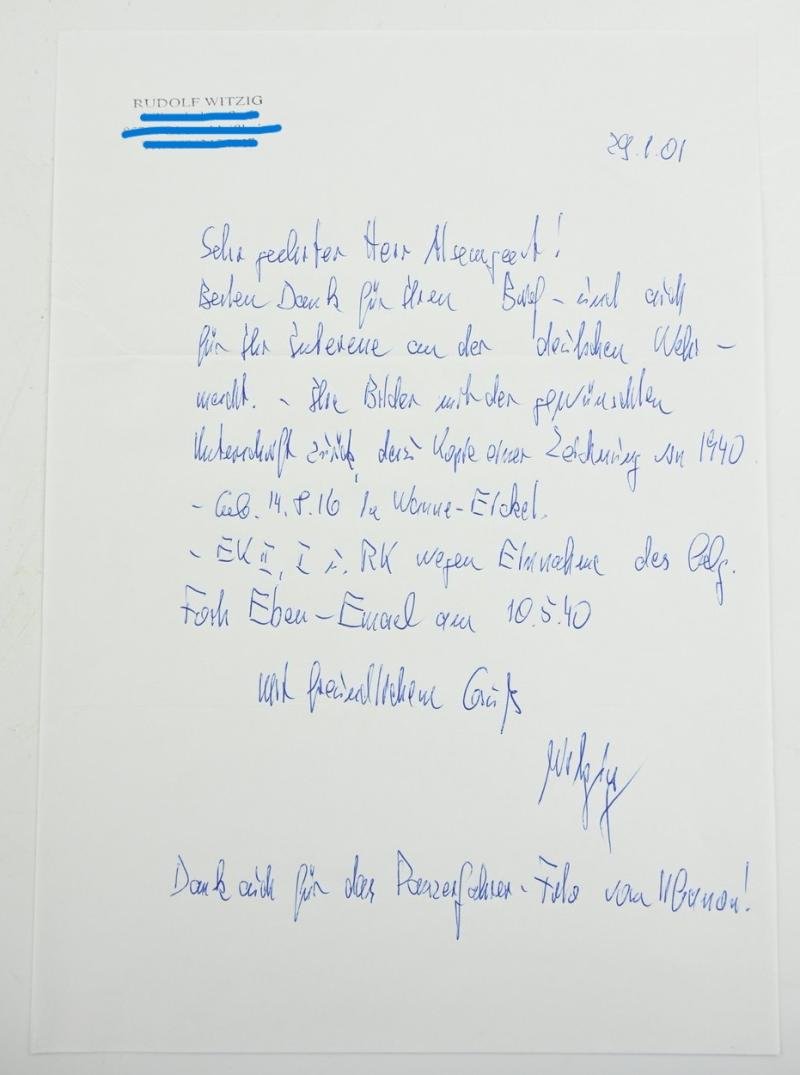 RUDOLF WITZIG
29.1.01
Sehr geehrter Herr
Besten Dank für Ihren Brief – und auch
für Ihr Interesse an der deutschen Wehr –
macht. – Ihre Bilder mit der gewünschten
Unterschrift zurück, dazu Kopie einer Zeichnung von 1940
– Geb. 14.8.16 in Wanne-Eickel.
– EK II, I u. RK wegen Einnahme des belg.
Forts Eben-Emael am 10.5.40
mit freundlichem Gruß
Witzig
Dank auch für das Panzerfahrer-Foto vom